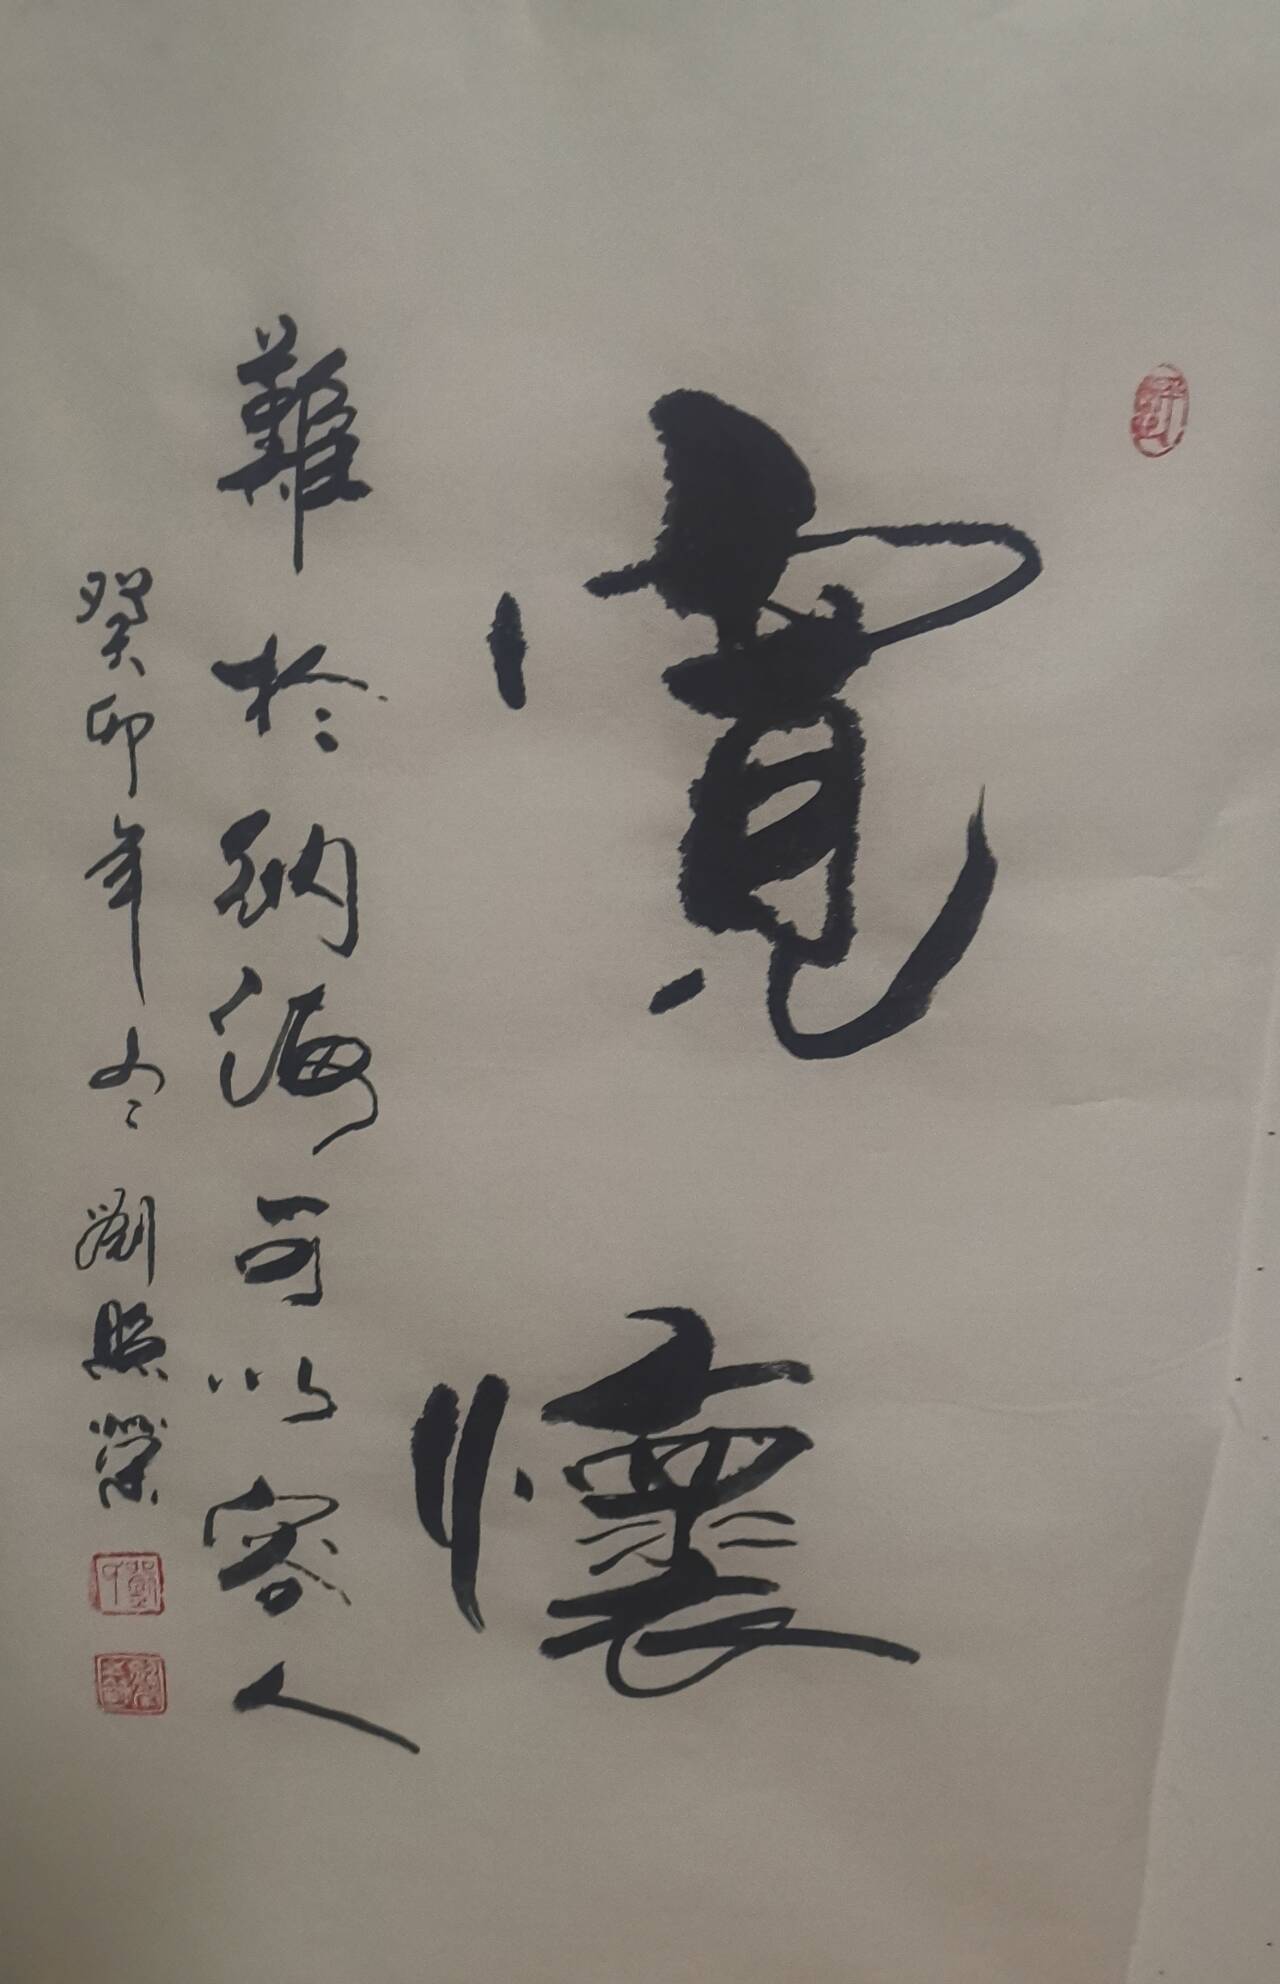 寬懷
難於納海可以容人
癸卯年冬劉照榮